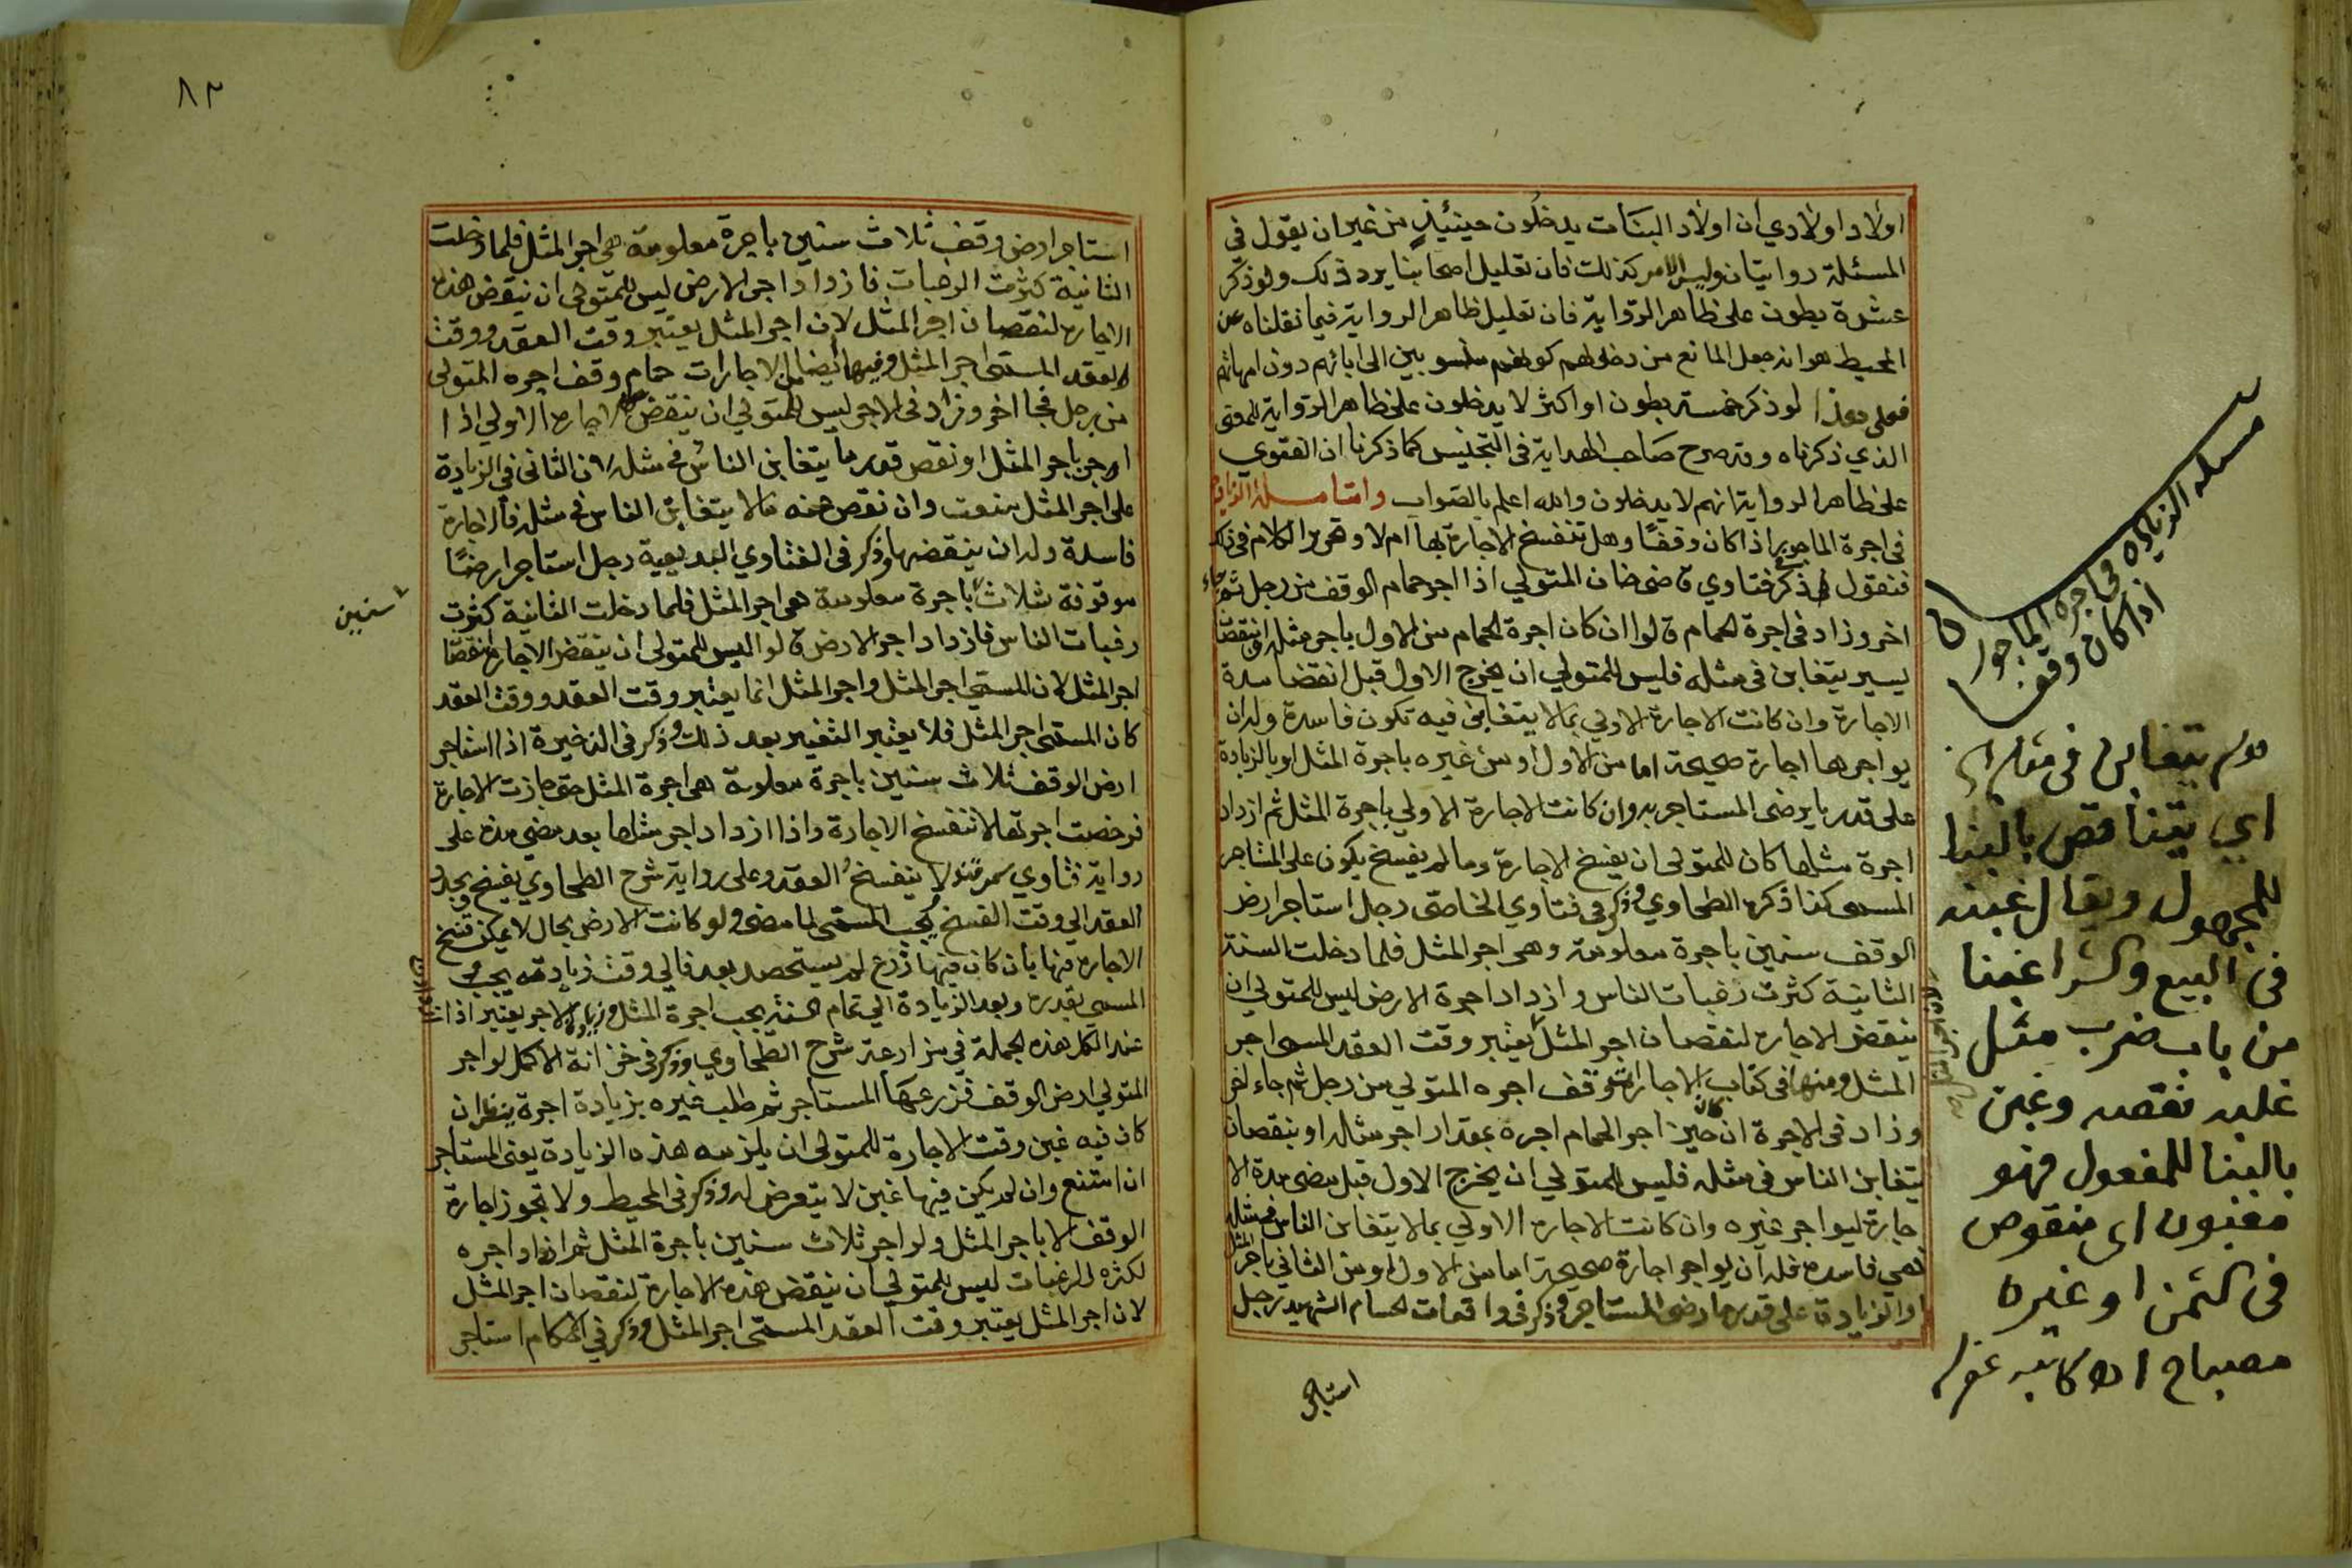 اولاد اولادي أن اولاد البنات يدخلون حينئيذٍ من غير ان يقول في
المسئلة روايتان وليس الامر كذلك فان تعليل اصحابنا يرد ذلك ولو ذكر
عشرة بطون على ظاهر الرواية فان تعليل ظاهر الرواية فيما نقلناه عن
المحيط هو انه جعل المانع من دخولهم كونهم منسوبين الى ابائهم دون امهاتهم
فعلى هذا لو ذكر خمسة بطون او اكثر لا يدخلون على ظاهر الرواية للمعنى
الذي ذكرناه وقد صرح صاحب الهداية في التجنيس كما ذكرنا ان الفتوي
على ظاهر الرواية انهم لا يدخلون والله اعلم بالصواب واما مسئلة الزيادة
في اجرة الماجور اذا كان وقفًا وهل تنفسخ الاجارة بها ام لا وتحرير الكلام في ذلك
فنقول ذكر في فتاوي قاضي خان المتولي اذا اجر حمام الوقف من رجل ثم جاء
اخر وزاد في اجرة الحمام قالوا ان كان اجرة الحمام من الاول باجر مثله او نقصان
يسير يتغابن في مثله فليس للمتولي ان يخرج الاول قبل انقضا مدة
الاجارة وان كانت الاجارة الاولي بما لا يتغابن فيه تكون فاسدة وله ان
يواجرها اجارة صحيحة اما من الاول او من غيره باجرة المثل او بالزيادة
على قدر ما يرضى المستاجر به وان كانت الاجارة الاولي باجرة المثل ثم ازداد
اجرة مثلها كان للمتولى ان يفسخ الاجارة وما لم يفسخ يكون على المستاجر
المسمى كذا ذكره الطحاوي وذكر في فتاوي الخاصي رجل استاجر ارض
الوقف سنين باجرة معلومة وهي اجر المثل فلما دخلت السنة
الثانية كثرت رغبات الناس وازداد اجرة الارض ليس للمتولي ان
ينقض الاجارة لنقصان اجر المثل يعتبر وقت العقد المسمى اجر
المثل ومنها في كتاب الاجارات وقف اجره المتولي من رجل ثم جاء اخر
وزاد في الاجرة ان كان حين اجر الحمام اجره بمقدار اجر مثله او بنقصان
يتغابن الناس في مثله فليس للمتولي ان يخرج الاول قبل مضى مدة الا
جارة ليواجر غيره وان كانت الاجارة الاولي بما لا يتغابن الناس في مثله
فهي فاسدة فله ان يواجر اجارة صحيحة اما من الاول او من الثاني باجر المثل
او الزيادة على قدر ما رضي المستاجر وذكر في واقعات الحسام الشهيد رجل
استاجر
مسئلة الزيادة في اجرة الماجور
اذا كان وقفا
قوله يتغابن في مثله اي
اي يتناقص بالبنا
للمجهول ويقال غبنه
في البيع والشرا غبنا
من باب ضرب مثل
غلبه نقصه وغبن
بالبنا للمفعول فهو
مغبون اي منقوص
في الثمن او غيره
مصباح اه كاتبه غفر له
٨٢
استاجر ارض وقف ثلاث سنين باجرة معلومة هي اجر المثل فلما دخلت
الثانية كثرت الرغبات فازداد اجر الارض ليس للمتولي ان ينقض هذه
الاجارة لنقصان اجر المثل لان اجر المثل يعتبر وقت العقد ووقت
العقد المسمى اجر المثل وفيها ايضا من الاجارات حمام وقف اجره المتولى
من رجل فجا اخر وزاد في الاجر ليس للمتولي ان ينقض الاجارة الاولي اذا
اوجر باجر المثل او نقص قدر ما يتغابن الناس في مثله لان الثاني في الزيادة
على اجر المثل متعنت وان نقص عنه ما لا يتغابن الناس في مثله فالاجارة
فاسدة وله ان ينقضها وذكر في الفتاوي البديعية رجل استاجر ارضًا
موقوفة بثلاث باجرة معلومة هي اجر المثل فلما دخلت الثانية كثرت
سنين
رغبات الناس فازداد اجر الارض قالوا ليس للمتولى ان ينقض الاجارة لنقصان
اجر المثل لان المسمى اجر المثل واجر المثل انما يعتبر وقت العقد ووقت العقد
كان المسمى اجر المثل فلا يعتبر التغيير بعد ذلك وذكر في الذخيرة اذا استاجر
ارض الوقف ثلاث سنين باجرة معلومة هي اجرة المثل حتى جازت الاجارة
فرخصت اجرتها لا تنفسخ الاجارة واذا ازداد اجر مثلها بعد مضي مدة على
رواية فتاوي سمرقند لا ينفسخ العقد وعلى رواية شرح الطحاوي يفسخ ويجدد
العقد الي وقت الفسخ يجب المسمى لما مضى ولو كانت الارض بحال لا يمكن فسخ
الاجارة فيها بان كان فيها زرع لم يستحصد بعد فالي وقت زيادته يجب
المسمى بقدره وبعد الزيادة الي تمام السنة يجب اجرة المثل وزيادة الاجر يعتبر اذا
عند الكل هذه الجملة في مزارعة شرح الطحاوي وذكر في خزانة الاكمل لو اجر
المتولي ارض الوقف فزرعها المستاجر ثم طلب غيره بزيادة اجرة ينظر ان
كان فيه غبن وقت الاجارة للمتولى ان يلزمه هذه الزيادة يعني المستاجر
ان امتنع وان لم يكن فيها غبن لا يتعرض له وذكر في المحيط ولا تجوز اجارة
الوقف الا باجر المثل ولو اجر ثلاث سنين باجرة المثل ثم ازداد اجره
لكثرة الرغبات ليس للمتولي ان ينقض هذه الاجارة لنقصان اجر المثل
لان اجر المثل يعتبر وقت العقد المسمى اجر المثل وذكر في الاحكام استاجر